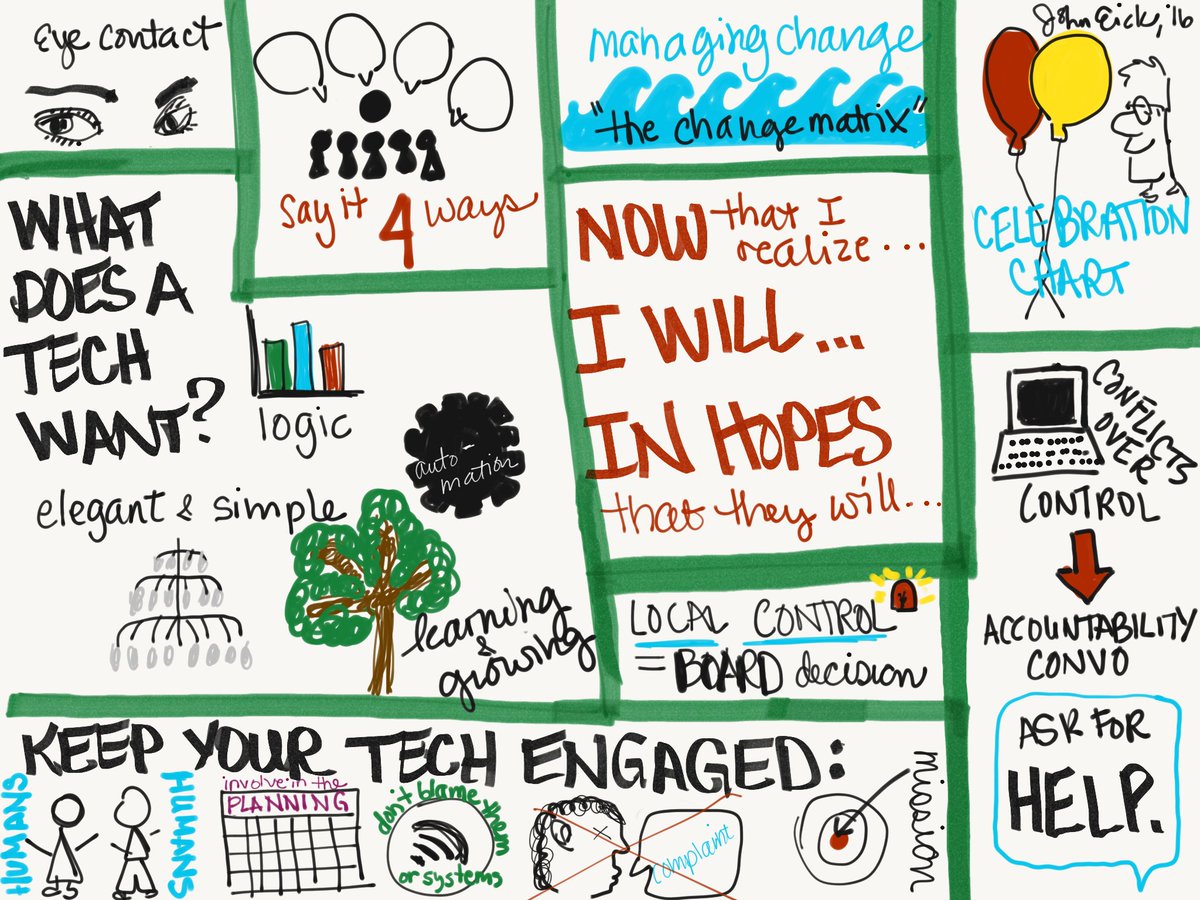 eye contact
say it 4 ways
managing change
"the change matrix"
John Eick, '16
CELEBRATION
CHART
WHAT
DOES A
TECH
WANT?
logic
auto-
mation
elegant & simple
learning
&
growing
NOW that I
realize...
I WILL...
IN HOPES
that they will...
LOCAL CONTROL
= BOARD decision
CONFLICTS
OVER
CONTROL
ACCOUNTABILITY
CONVO
ASK FOR
HELP.
KEEP YOUR TECH ENGAGED:
HUMANS
HUMANS
involve in the
PLANNING
don't blame them
or systems
complaint
mission